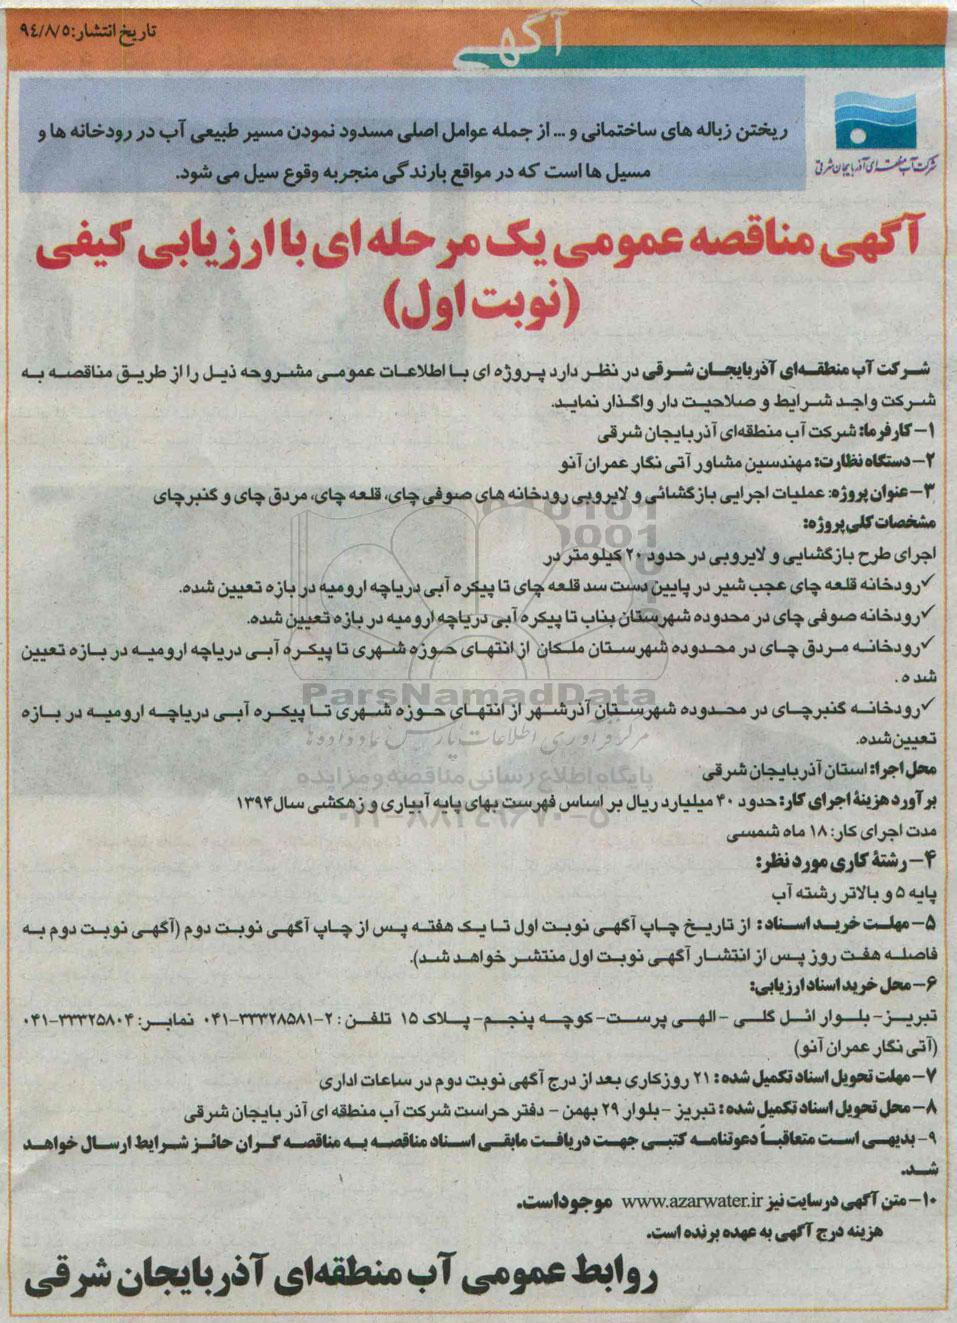 تاریخ انتشار: ۹۴/۸/۵
آگهی
شرکت آب منطقه‌ای آذربایجان شرقی
ریختن زباله های ساختمانی و ... از جمله عوامل اصلی مسدود نمودن مسیر طبیعی آب در رودخانه ها و
مسیل ها است که در مواقع بارندگی منجر به وقوع سیل می شود.
آگهی مناقصه عمومی یک مرحله ای با ارزیابی کیفی
(نوبت اول)
شرکت آب منطقه‌ای آذربایجان شرقی در نظر دارد پروژه ای با اطلاعات عمومی مشروحه ذیل را از طریق مناقصه به
شرکت واجد شرایط و صلاحیت دار واگذار نماید.
۱- کارفرما: شرکت آب منطقه‌ای آذربایجان شرقی
۲- دستگاه نظارت: مهندسین مشاور آتی نگار عمران آنو
۳- عنوان پروژه: عملیات اجرایی بازگشائی و لایروبی رودخانه های صوفی چای، قلعه چای، مردق چای و گنبرچای
مشخصات کلی پروژه:
اجرای طرح بازگشایی و لایروبی در حدود ۲۰ کیلومتر در
✓رودخانه قلعه چای عجب شیر در پایین دست سد قلعه چای تا پیکره آبی دریاچه ارومیه در بازه تعیین شده.
✓رودخانه صوفی چای در محدوده شهرستان بناب تا پیکره آبی دریاچه ارومیه در بازه تعیین شده.
✓رودخانه مردق چای در محدوده شهرستان ملکان از انتهای حوزه شهری تا پیکره آبی دریاچه ارومیه در بازه تعیین
شده.
✓رودخانه گنبرچای در محدوده شهرستان آذرشهر از انتهای حوزه شهری تا پیکره آبی دریاچه ارومیه در بازه
تعیین شده.
محل اجرا: استان آذربایجان شرقی
برآورد هزینهٔ اجرای کار: حدود ۴۰ میلیارد ریال بر اساس فهرست بهای پایه آبیاری و زهکشی سال ۱۳۹۴
مدت اجرای کار: ۱۸ ماه شمسی
۴- رشتهٔ کاری مورد نظر:
پایه ۵ و بالاتر رشته آب
۵- مهلت خرید اسناد: از تاریخ چاپ آگهی نوبت اول تا یک هفته پس از چاپ آگهی نوبت دوم (آگهی نوبت دوم به
فاصله هفت روز پس از انتشار آگهی نوبت اول منتشر خواهد شد).
۶- محل خرید اسناد ارزیابی:
تبریز- بلوار ائل گلی - الهی پرست- کوچه پنجم- پلاک ۱۵ تلفن: ۲-۳۳۳۲۸۵۸۱-۰۴۱ نمابر: ۳۳۳۲۵۸۰۴-۰۴۱
(آتی نگار عمران آنو)
۷- مهلت تحویل اسناد تکمیل شده: ۲۱ روزکاری بعد از درج آگهی نوبت دوم در ساعات اداری
۸- محل تحویل اسناد تکمیل شده: تبریز - بلوار ۲۹ بهمن - دفتر حراست شرکت آب منطقه ای آذربایجان شرقی
۹- بدیهی است متعاقباً دعوتنامه کتبی جهت دریافت مابقی اسناد مناقصه به مناقصه گران حائز شرایط ارسال خواهد
شد.
۱۰- متن آگهی در سایت نیز www.azarwater.ir موجود است.
هزینه درج آگهی به عهده برنده است.
روابط عمومی آب منطقه‌ای آذربایجان شرقی
ParsNamadData
مرکز فرآوری اطلاعات پارس نماد داده‌ها
پایگاه اطلاع رسانی مناقصه و مزایده
۰۲۱-۸۸۳۴۹۶۷۰-۵